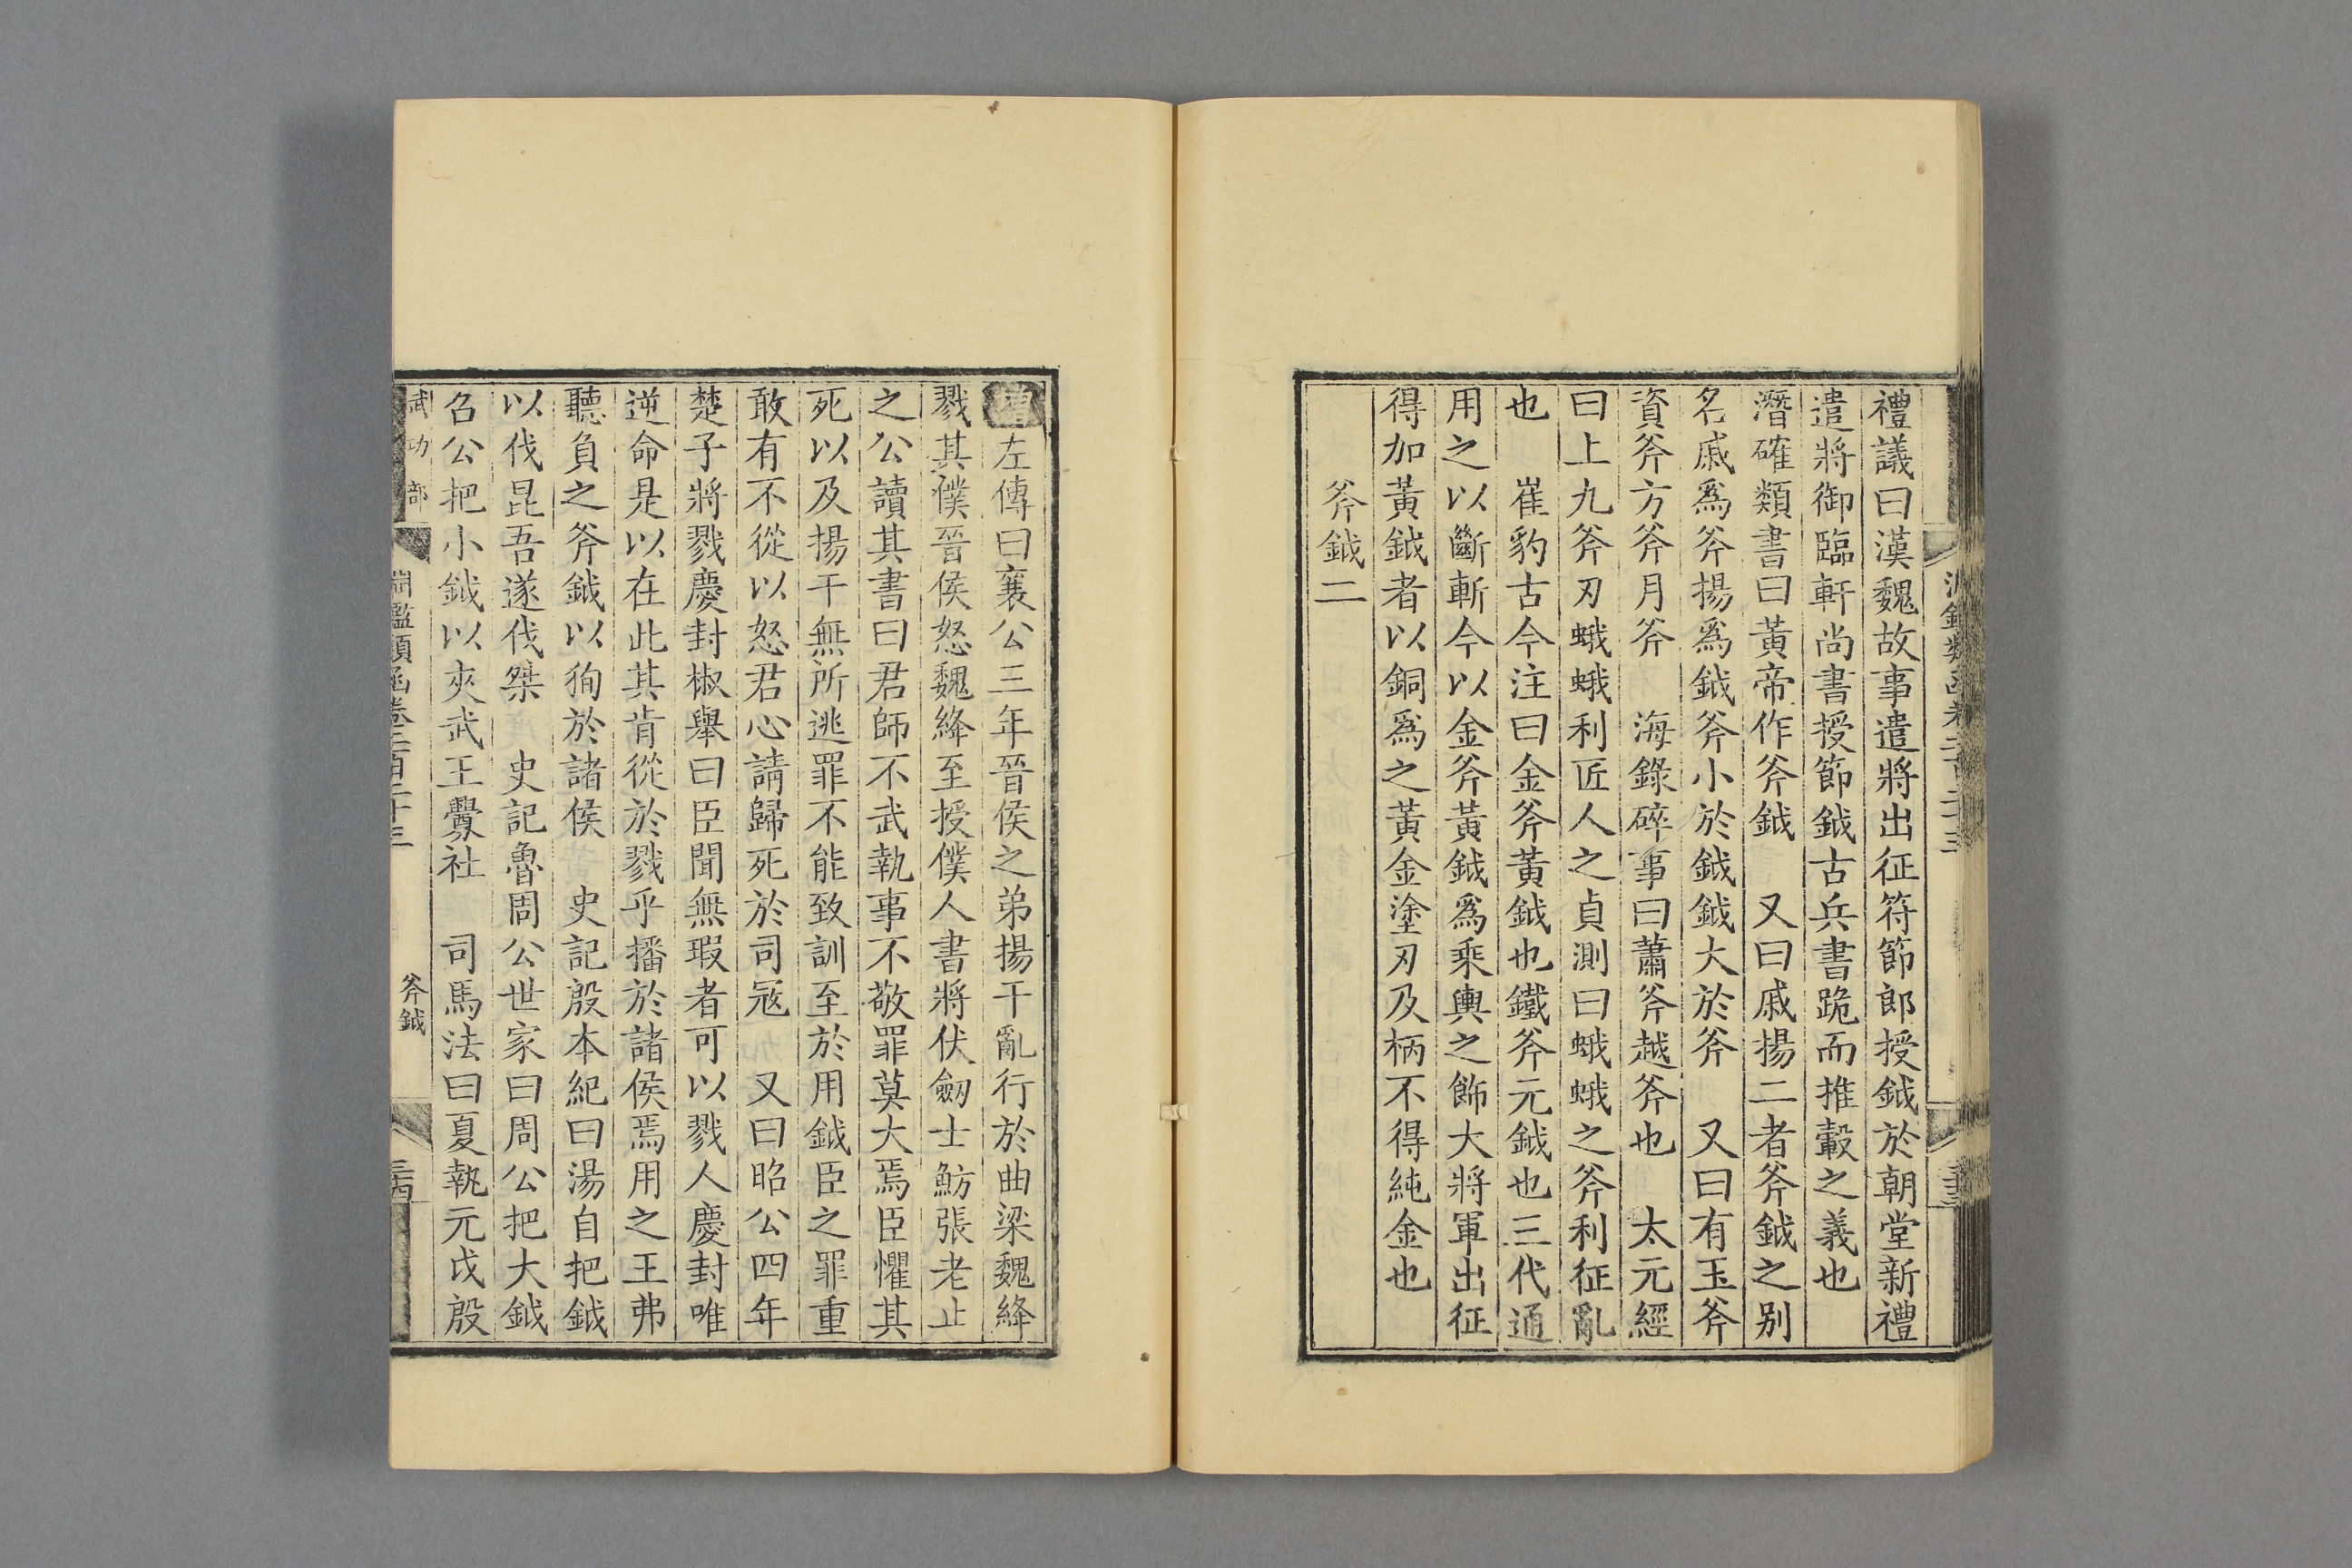 禮議曰漢魏故事遣將出征符節郎授鉞於朝堂新禮
遣將御臨軒尚書授節鉞古兵書跪而推轂之義也
潛確類書曰黃帝作斧鉞　又曰戚揚二者斧鉞之别
名戚爲斧揚爲鉞斧小於鉞鉞大於斧　又曰有玉斧
資斧方斧月斧　海錄碎事曰蕭斧越斧也　太元經
曰上九斧刃蛾蛾利匠人之貞測曰蛾蛾之斧利征亂
也　崔豹古今注曰金斧黃鉞也鐵斧元鉞也三代通
用之以斷斬今以金斧黃鉞爲乘輿之飾大將軍出征
得加黃鉞者以銅爲之黃金塗刃及柄不得純金也
斧鉞二
左傳曰襄公三年晉侯之弟揚干亂行於曲梁魏絳
戮其僕晉侯怒魏絳至授僕人書將伏劒士魴張老止
之公讀其書曰君師不武執事不敬罪莫大焉臣懼其
死以及揚干無所逃罪不能致訓至於用鉞臣之罪重
敢有不從以怒君心請歸死於司寇　又曰昭公四年
楚子將戮慶封椒舉曰臣聞無瑕者可以戮人慶封唯
逆命是以在此其肯從於戮乎播於諸侯焉用之王弗
聽負之斧鉞以狥於諸侯　史記殷本紀曰湯自把鉞
以伐昆吾遂伐桀　史記魯周公世家曰周公把大鉞
召公把小鉞以夾武王釁社　司馬法曰夏執元戉殷
武功部　淵鑑類函卷二百二十三　斧鉞